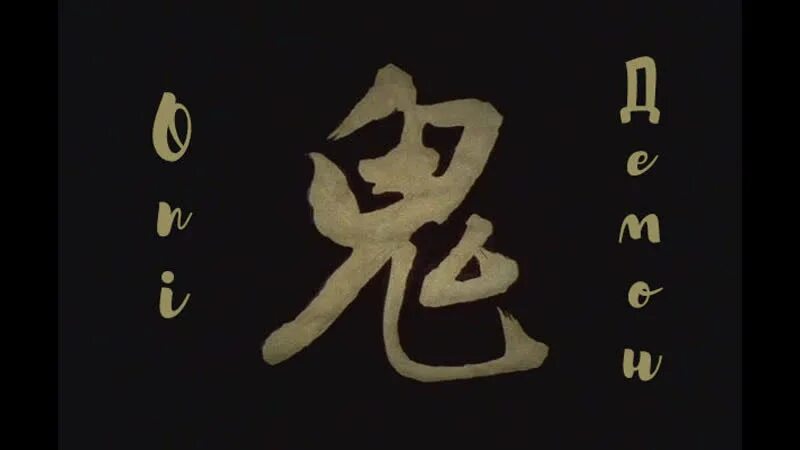 Oni
鬼
Демон